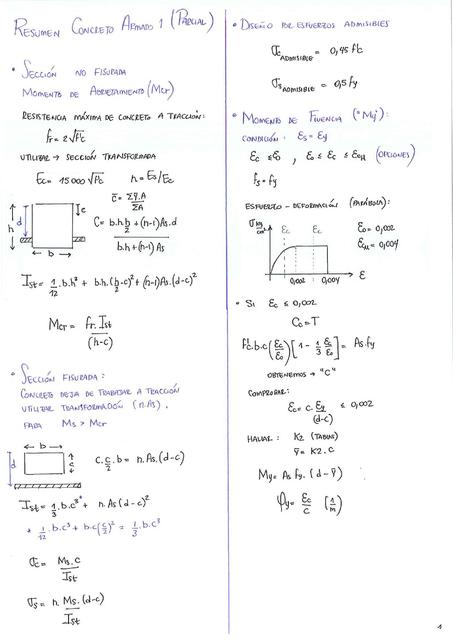 RESUMEN CONCRETO ARMADO 1 (PARCIAL)
• SECCIÓN NO FISURADA
MOMENTO DE AGRIETAMIENTO (Mcr)
RESISTENCIA MÁXIMA DE CONCRETO A TRACCIÓN:
fr = 2√f'c
UTILIZAR → SECCIÓN TRANSFORMADA
Ec = 15000√f'c n = Es/Ec
c̄ = Σȳ.A / ΣA
b
h d c
C = b.h.h/2 + (n-1)As.d / b.h + (n-1)As
Ist = 1/12 .b.h³ + b.h.(h/2-c)² + (n-1)As.(d-c)²
Mcr = fr.Ist / (h-c)
• SECCIÓN FISURADA:
CONCRETO DEJA DE TRABAJAR A TRACCIÓN
UTILIZAR TRANSFORMACIÓN (n.As).
PARA Ms > Mcr
b
d c
c.c/2.b = n.As.(d-c)
Ist = 1/3 .b.c³* + n.As(d-c)²
* 1/12 .b.c³ + b.c(c/2)² = 1/3.b.c³
σc = Ms.c / Ist
σs = n Ms.(d-c) / Ist
• DISEÑO POR ESFUERZOS ADMISIBLES
σc ADMISIBLE = 0,45 f'c
σs ADMISIBLE = 0,5 fy
• MOMENTO DE FLUENCIA ("My"):
CONDICIÓN: εs = εy
εc ≤ ε0 , ε0 ≤ εc ≤ εcu (OPCIONES)
fs = fy
ESFUERZO - DEFORMACIÓN (PARÁBOLA):
σ kg/cm² εc εc
ε0 = 0,002
εcu = 0,004
0,002 0,004 ε
• SI εc ≤ 0,002
Cc = T
f'c.b.c(εc/ε0)[1 - 1/3 εc/ε0] = As.fy
OBTENEMOS → "C"
COMPROBAR:
εc = c. εy/(d-c) ≤ 0,002
HALLAR: K2 (TABLAS)
ȳ = K2.C
My = As fy. (d - ȳ)
φy = εc/c [1/m]
1